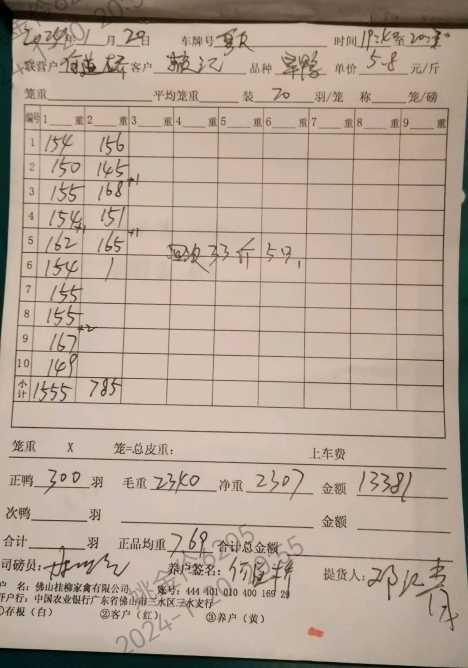 2024年1月20日 车牌号 时间
联营户 何益桥 客户 记 品种 单价 5.8 元/斤
笼重 平均笼重 装 20 羽/笼 称 笼/磅
编号 1 重 2 重 3 重 4 重 5 重 6 重 7 重 8 重 9 重
1 154 156
2 150 145
3 155 168 +1
4 154 151
5 162 +1 165 +1 33斤5只
6 154 /
7 155
8 155
9 167 +2
10 149
小计 1555 785
笼重 X 笼=总皮重: 上车费
正鸭 300 羽 毛重 2340 净重 2307 金额 13381
次鸭 羽 金额
合计 羽 正品均重 7.69 合计总金额
司磅员: 养户签名: 何益桥 提货人: 邓
户 名: 佛山桂柳家禽有限公司 账号: 444 401 010 400 169 29
开户行: 中国农业银行广东省佛山市三水区三水支行
①存根(白) ②客户(红) ③养户(黄)